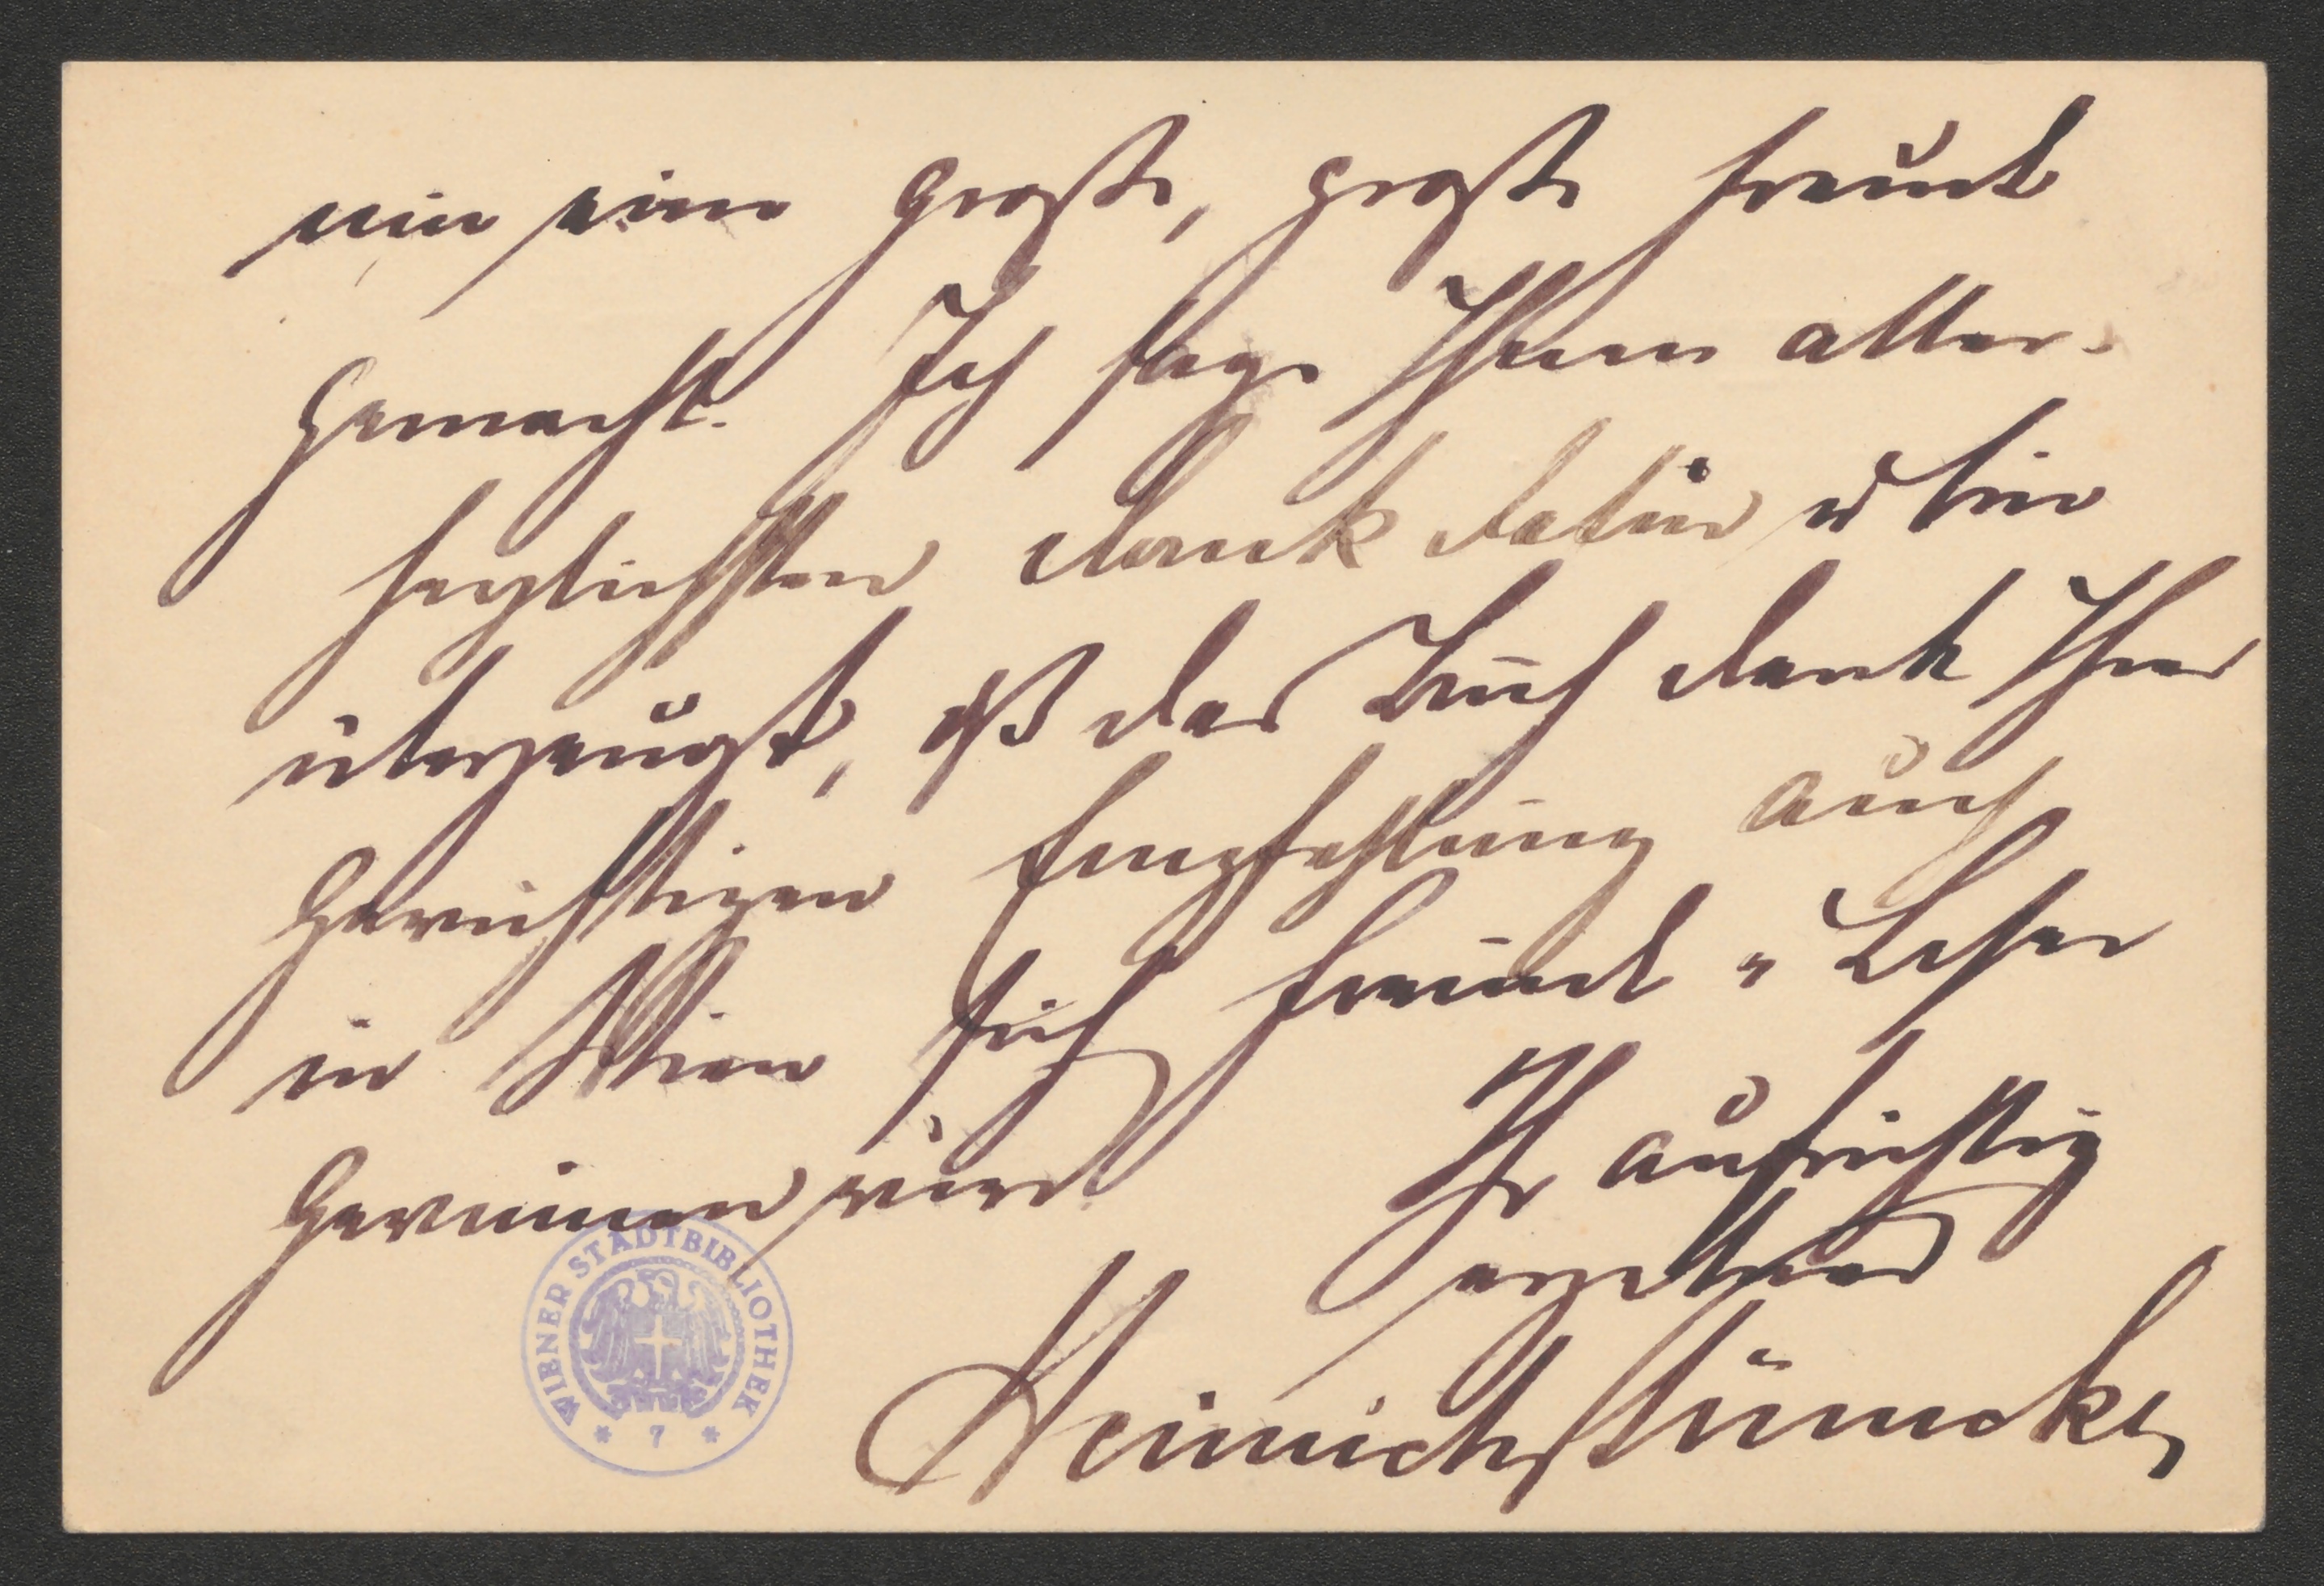 mir eine große, große Freude
gemacht. Ich sage Ihnen aller-
herzlichsten Dank dafür u bin
überzeugt, dß das Buch dank Ihrer
gewichtigen Empfehlung auch
in Wien sich Freunde u Leser
gewinnen wird.
Ihr aufrichtig
ergebener
Heinrich Stümcke
WIENER STADTBIBLIOTHEK
* 7 *